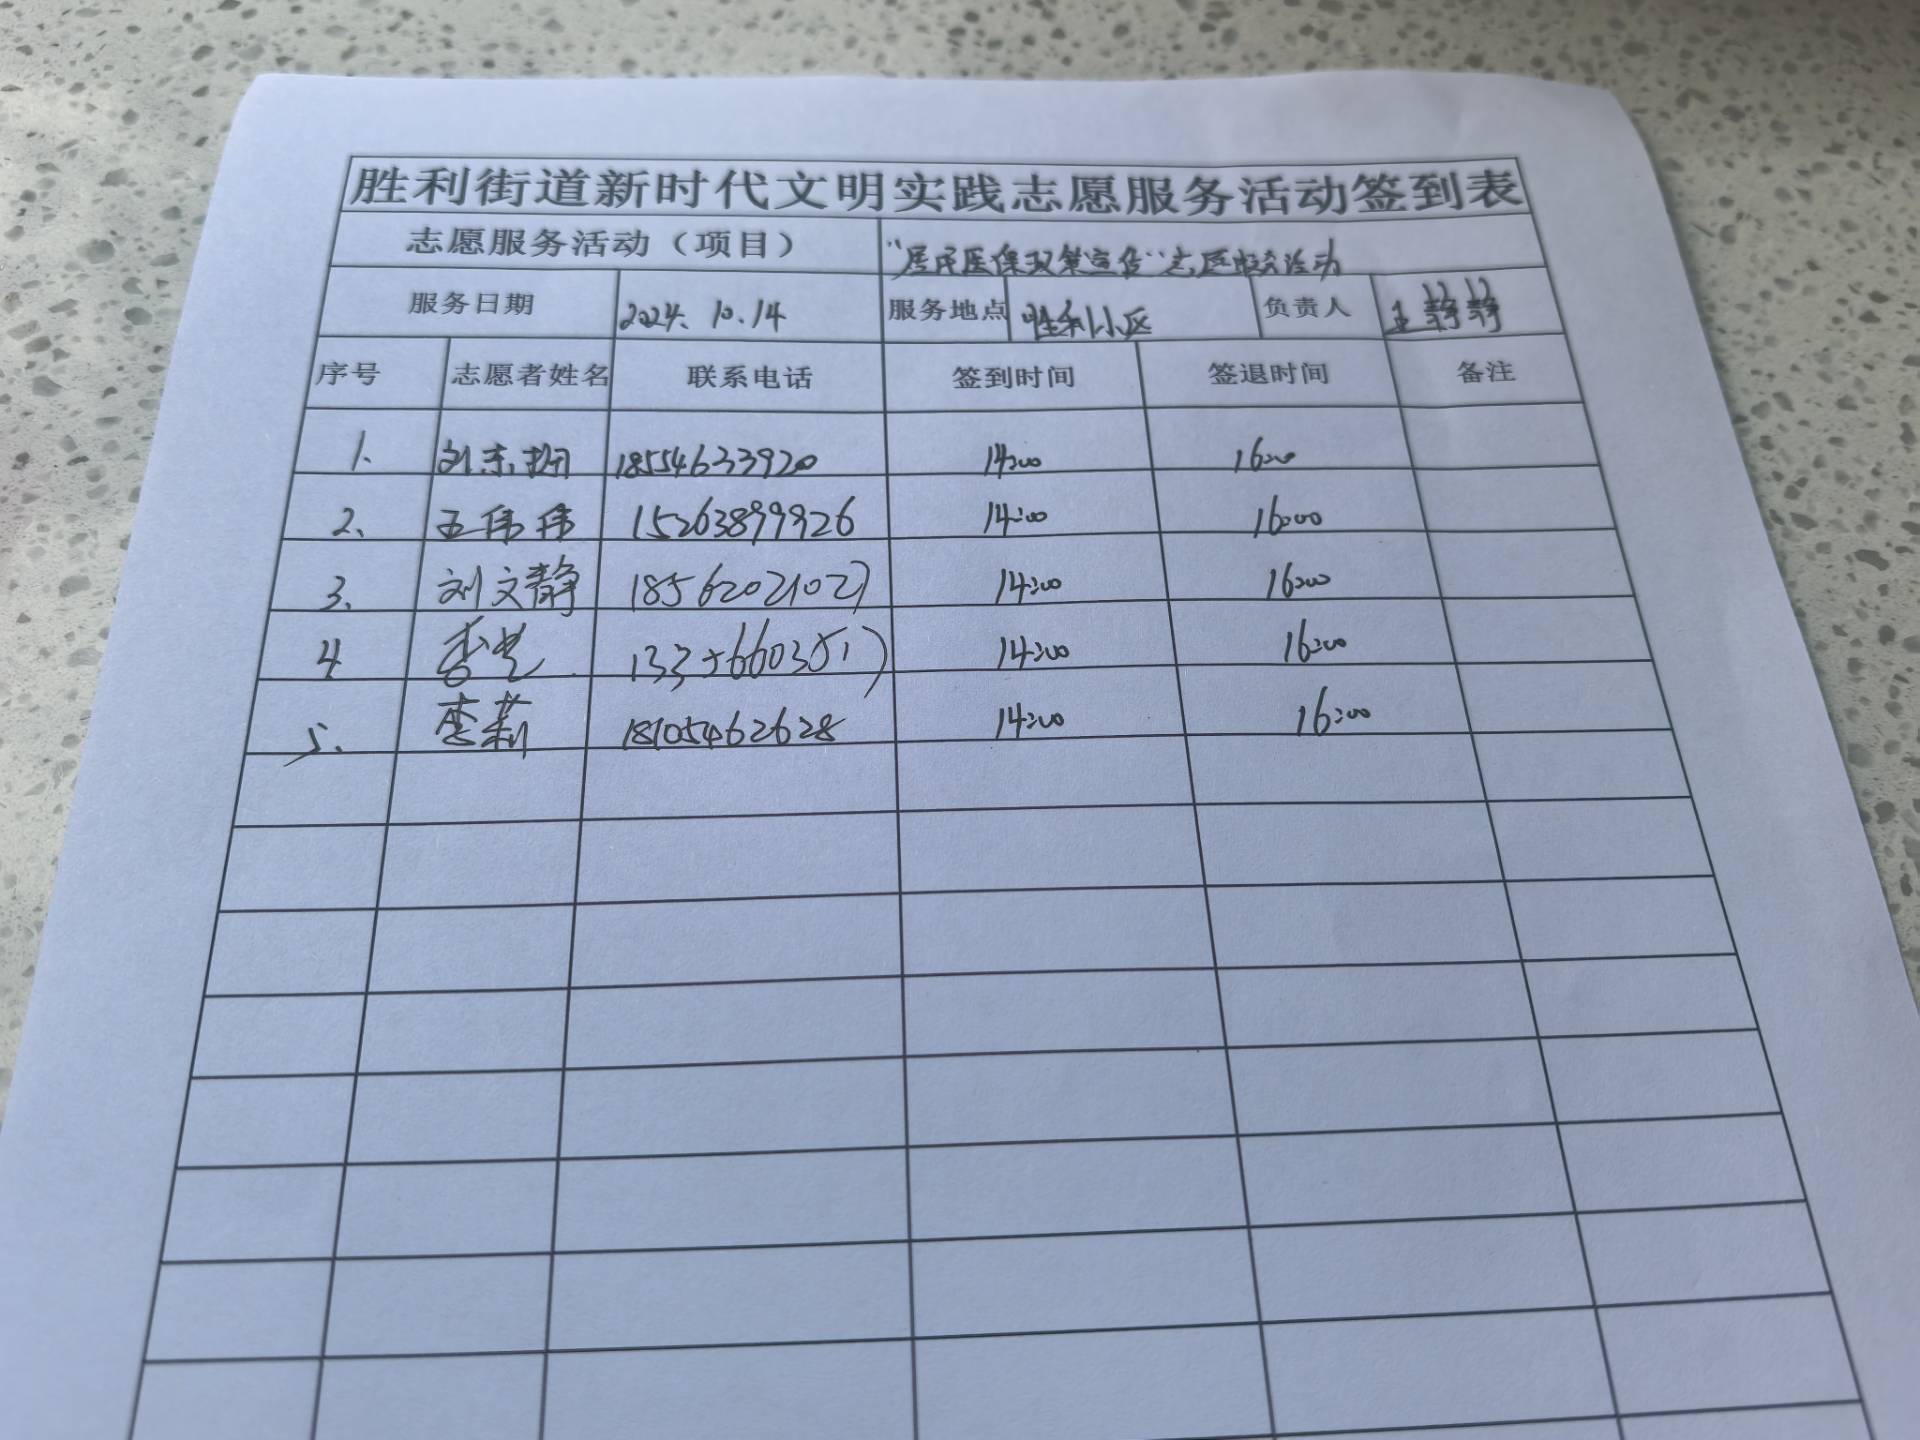 胜利街道新时代文明实践志愿服务活动签到表
志愿服务活动（项目） “居民医保政策宣传”志愿服务活动
服务日期 2024.10.14 服务地点 胜利小区 负责人 王静静
序号 志愿者姓名 联系电话 签到时间 签退时间 备注
1. 刘东 18554633920 14:00 16:00
2、 王伟伟 15263899926 14:00 16:00
3、 刘文静 18562021027 14:00 16:00
4 14:00 16:00
5、 李莉 18105462628 14:00 16:00